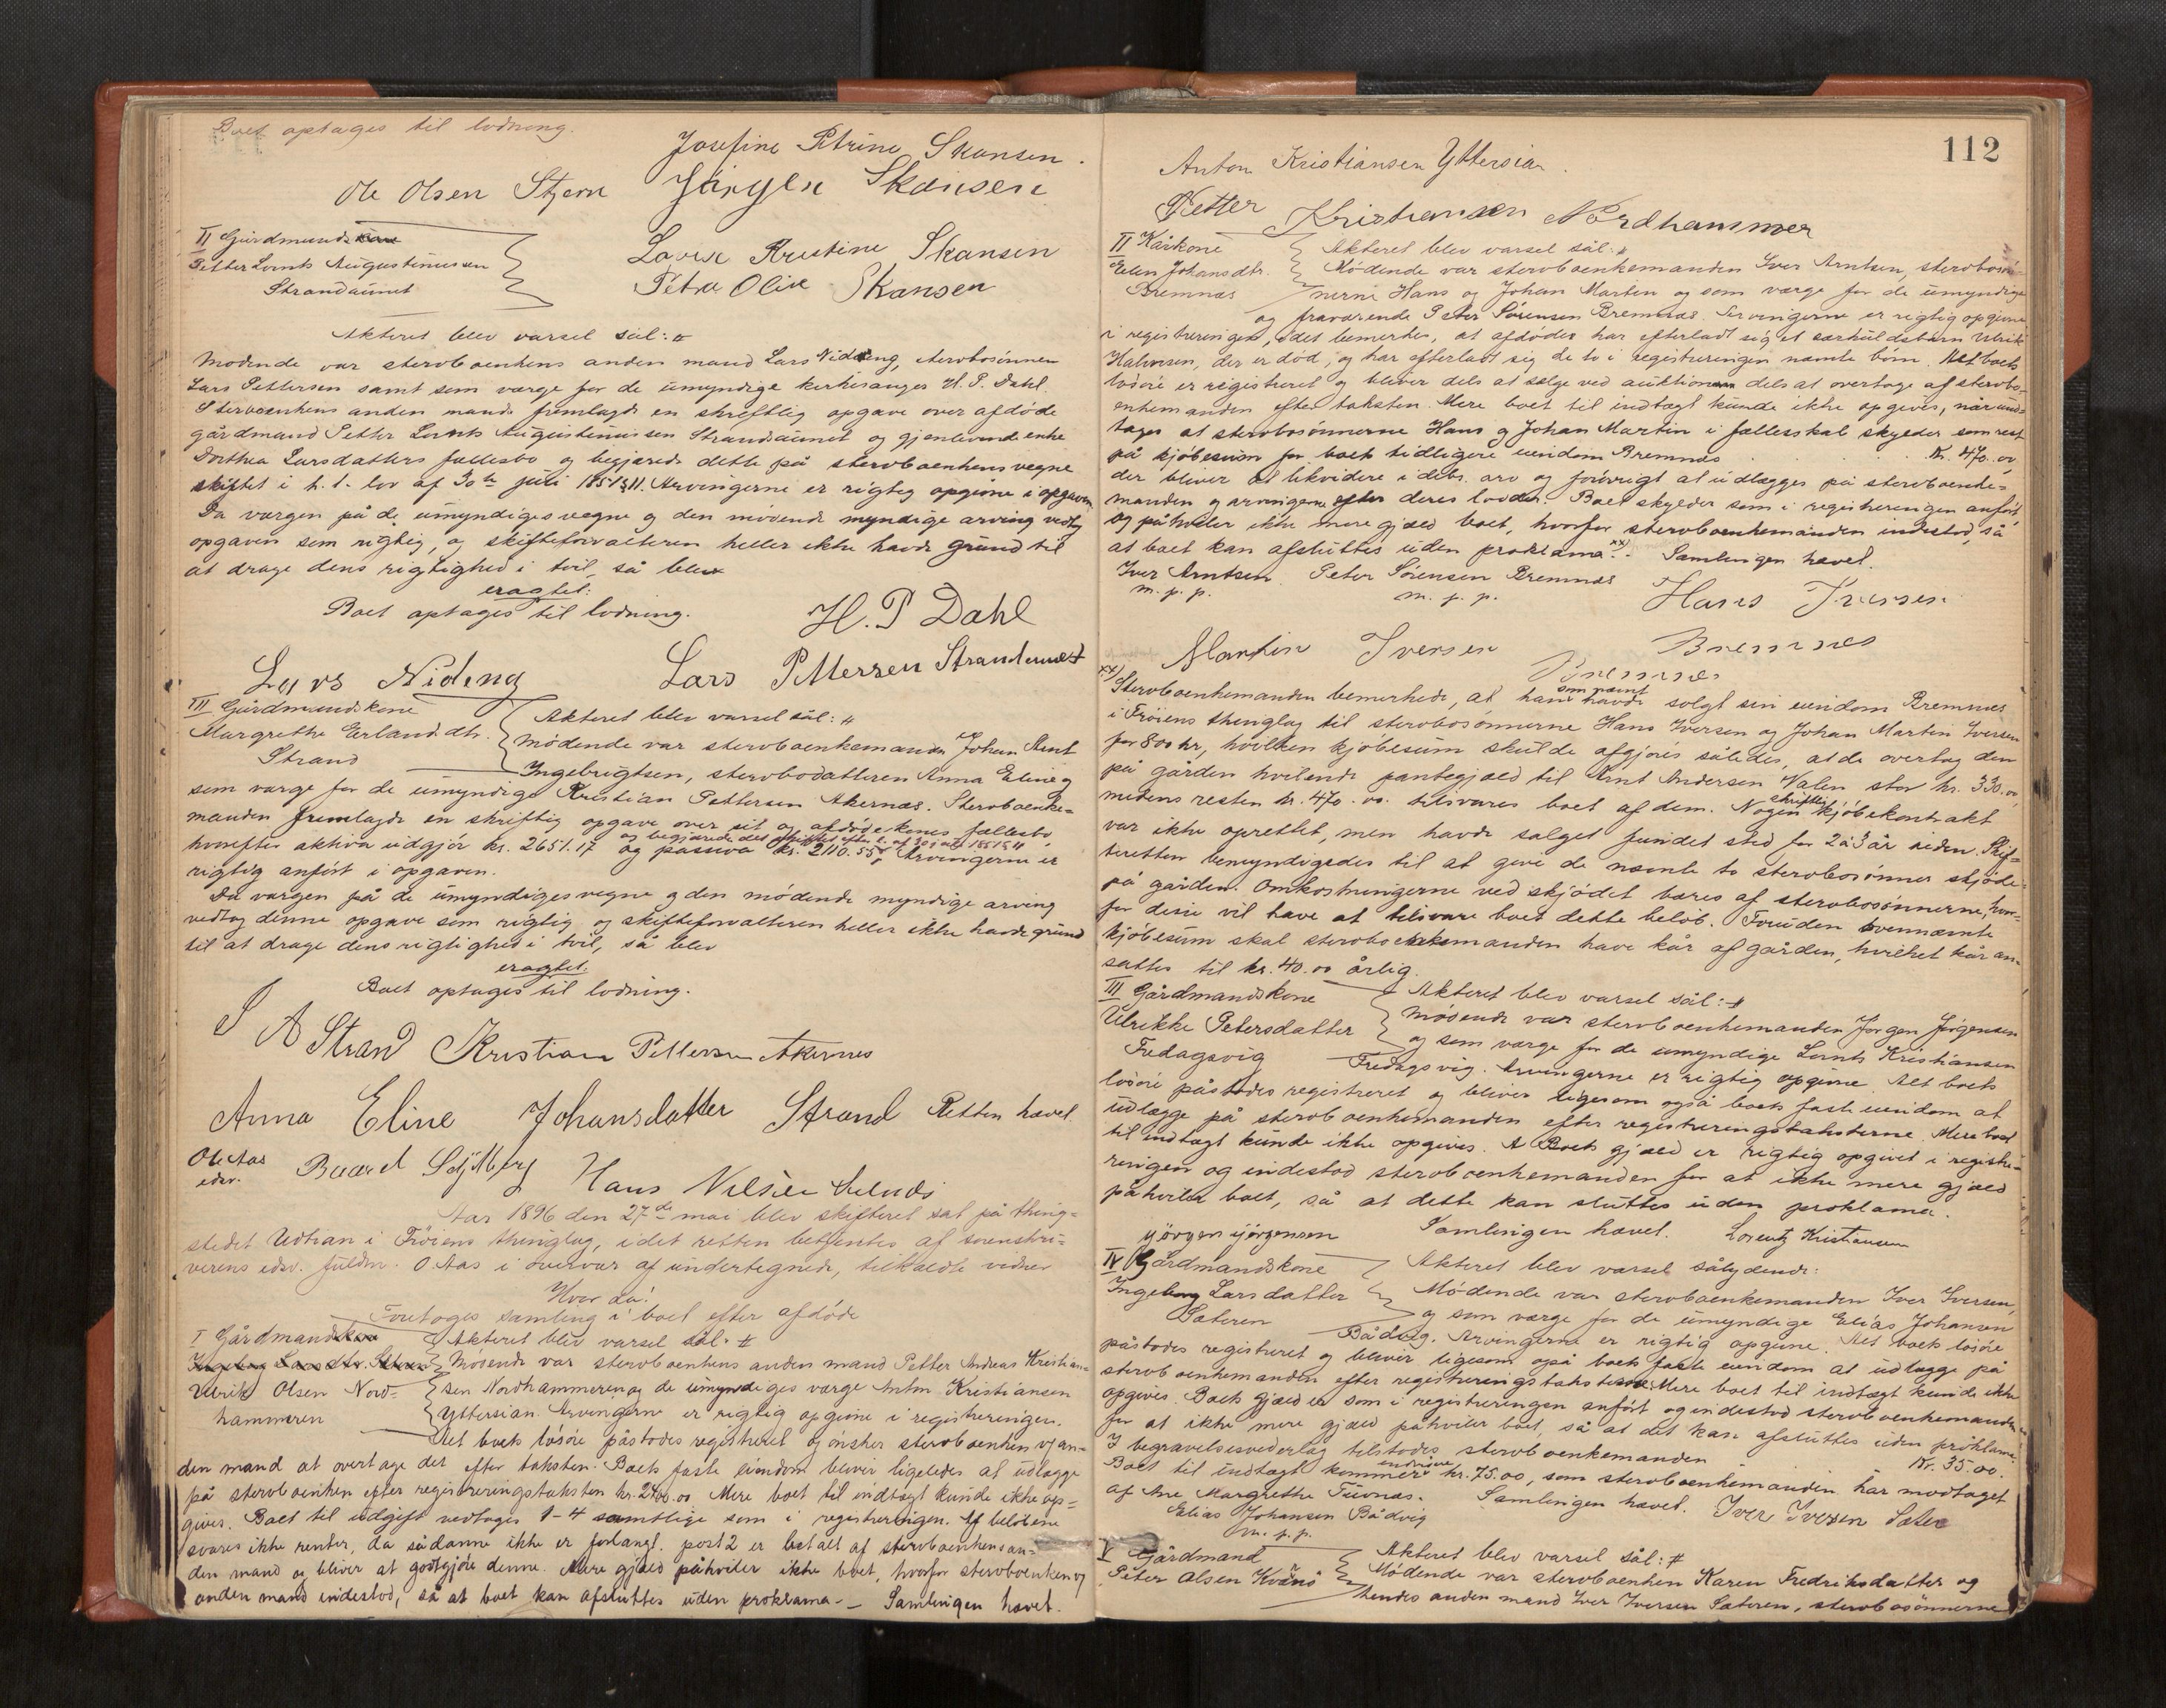 Boet optages til lodning.
Josefine Petrine Skansen.
Ole Olsen Stjern Jörgen Skansen
II Gårdmand
Petter Lornts Augustinussen
Strandaunet
Lovise Kristine Skansen
Petra Olise Skansen
Akteret blev varsel sål: #
Mødende var sterboenkens anden mand Lars Nideng, sterbosönnen
Lars Pettersen samt som værge for de umyndige kirkesanger H. P. Dahl.
Sterboenkens anden mand fremlagde en skriftlig opgave over afdöde
gårdmand Petter Lornts Augustinussen Strandaunet og gjenlevende enke
Dorthea Larsdatters fællesbo og begjærede dette på sterboenkens vegne
skiftet i h. t. lov af 30te juli 1851 § 11. Arvingerne er rigtig opgivne i opgaven
Da værgen på de umyndiges vegne og den mödende myndige arving vedtog
opgaven som rigtig, og skifteforvalteren heller ikke havde grund til
at drage dens rigtighed i tvil, så blev
eragtet:
Boet optages til lodning.
H. P Dahl
Lars Nideng Lars Pettersen Strandaunet
III Gårdmandskone
Margrethe Erlandsdtr.
Strand
Akteret blev varsel sål: #
Mödende var sterboenkemanden Johan Arnt
Ingebrigtsen, sterbodatteren Anna Eline og
som værge for de umyndige Kristian Pettersen Akernæs. Sterboenke-
manden fremlagde en skriftig opgave over sit og afdöde kones fællesbo,
og begjærede det skiftet efter l. af 30 juli 1851 § 11
hvorefter aktiva udgjör kr. 2651.17 og passiva kr. 2110.55. Arvingerne er
rigtig anfört i opgaven.
Da værgen på de umyndiges vegne og den mödende myndige arving
vedtog denne opgave som rigtig og skifteforvalteren heller ikke havde grund
til at drage dens rigtighed i tvil, så blev
eragtet:
Boet optages til lodning.
J A Strand Kristian Pettersen Akernes
Anna Eline Johansdatter Strand Retten hævet.
Ole Aas
edsv.
Baard Seljeberg Hans Nelsen
Aar 1896 den 27de mai blev skifteret sat på thing-
stedet Udtian i Fröiens thinglag, idet retten betjentes af sorenskri-
verens edsv. fuldm. O Aas i overvær af undertegnede, tilkaldte vidner
Hvor da:
Foretoges samling i boet efter afdöde
I Gårdmand
Ulrik Olsen Nord-
hammeren
Akteret blev varsel sål: #
Mödende var sterboenkens anden mand Petter Andreas Kristian-
sen Nordhammeren og de umyndiges værge Anton Kristiansen
Yttersian. Arvingerne er rigtig opgivne i registreringen.
Alt boets lösöre påstodes registreret og önsker sterboenken og an-
den mand at overtage det efter taksten. Boets faste eiendom bliver ligeledes at udlægge
på sterboenken efter registreringstaksten kr. 2400.00 Mere boet til indtægt kunde ikke op-
gives. Boet til udgift vedtoges 1-4 samtlige som i registreringen. Af belöbene
svares ikke renter, da sådanne ikke er forlangt. post 2 er betalt af sterboenkens an-
den mand og bliver at godtgjöre denne. Mere gjæld påhviler ikke boet, hvorfor sterboenken og
anden mand indestod, så at boet kan afsluttes uden proklama.— Samlingen hævet.
112
Anton Kristiansen Yttersian.
Petter Kristiansen Nordhammer
II Kårkone
Elen Johansdtr.
Bremnæs
Akteret blev varsel sål: #
Mödende var sterboenkemanden Iver Arntsen, sterbosön-
nerne Hans og Johan Martin og som værge for de umyndige
og fraværende Peter Sörensen Bremnæs. Arvingerne er rigtig opgivne
i registreringen, idet bemerkes, at afdöde har efterladt sig et særkuldsbarn Ulrik
Kalvesen, der er död, og har efterladt sig de to i registreringen nævnte börn. Alt boets
lösöre er registreret og bliver dels at sælge ved auktion dels at overtage af sterbo-
enkemanden efter taksten. Mere boet til indtægt kunde ikke opgives, når und-
tages at sterbosönnerne Hans og Johan Martin i fællesskab skylder som rest
på kjöbesum for boets tidligere eiendom Bremnæs . . . Kr. 470.00
der bliver at likvidere i debs. arv og forövrigt at udlægges på sterboenke-
manden og arvingerne efter deres lodder. Boet skylder som i registreringen anfört
og påhviler ikke mere gjæld boet, hvorfor sterboenkemanden indestod, så
at boet kan afsluttes uden proklama. xx) Samlingen hævet.
Iver Arntsen
m. p. p.
Peter Sörensen Bremnæs
m. p. p.
Hans Iversen
Bremnes
Martin Iversen
Bremnes
xx) Sterboenkemanden bemerkede, at han som nævnt havde solgt sin eiendom Bremnæs
i Fröiens thinglag til sterbosönnerne Hans Iversen og Johan Martin Iversen
for 800 kr, hvilken kjöbesum skulde afgjöres således, at de overtog den
på gården hvilende pantegjæld til Arnt Andersen Valen stor kr. 330.00,
medens resten kr. 470.00. tilsvares boet af dem. Nogen skriftlig kjöbekontrakt
var ikke oprettet, men havde salget fundet sted for 2 à 3 år siden. Skif-
teretten bemyndigedes til at give de nævnte to sterbosönner skjöde
på gården. Omkostningerne ved skjödet bæres af sterbosönnerne, hvor-
for disse vil have at tilsvare boet dette belöb. Foruden ovennævnte
kjöbesum skal sterboenkemanden have kår af gården, hvilket kår an-
sattes til kr. 40.00 årlig.
III Gårdmandskone
Ulrikke Petersdatter
Fredagsvig
Akteret blev varsel sål: #
Mödende var sterboenkemanden Jörgen Jörgensen
og som værge for de umyndige Lornts Kristiansen
Fredagsvig. Arvingerne er rigtig opgivne. Alt boets
lösöre påstodes registreret og bliver ligesom også boets faste eiendom at
udlægge på sterboenkemanden efter registreringstaksterne. Mere boet
til indtægt kunde ikke opgives. Boets gjæld er rigtig opgivet i registre-
ringen og indestod sterboenkemanden for at ikke mere gjæld
påhviler boet, så at dette kan sluttes uden proklama.
Jörgen Jörgensen Samlingen hævet. Lorentz Kristiansen
IV Gårdmandskone
Ingeborg Larsdatter
Sæteren
Akteret blev varsel sålydende:
Mödende var sterboenkemanden Iver Iversen,
og som værge for de umyndige Elias Johansen
Bådvig. Arvingerne er rigtig opgivne. Alt boets lösöre
påstodes registreret og bliver ligesom også boets faste eiendom at udlægge på
sterboenkemanden efter registreringstaksterne. Mere boet til indtægt kunde ikke
opgives. Boets gjæld er som i registreringen anfört og indestod sterboenkemanden
for at ikke mere gjæld påhviler boet, så at det kan afsluttes uden proklama.
I begravelsesvederlag tilstodes sterboenkemanden Kr. 35.00.
Boet til indtægt kommer endvidere kr. 75.00, som sterboenkemanden har modtaget
af Ane Margrethe Tuvnæs. Samlingen hævet. Iver Iversen Sæter
Elias Johansen Bådvig
m. p. p.
V Gårdmand
Peter Olsen Kvænö
Akteret blev varsel sål: #
Mödende var sterboenken Karen Fredriksdatter og
hendes anden mand Iver Iversen Sæteren, sterbosönnerne